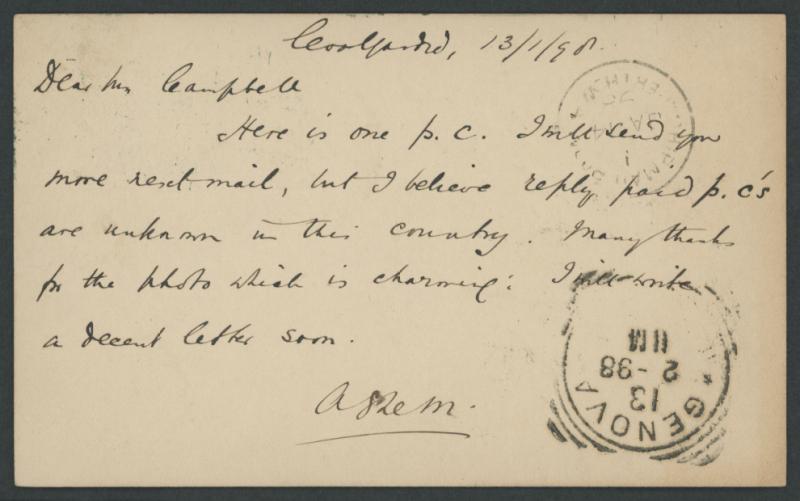 Coolgardie, 13/1/98.
Dear Mr Campbell
Here is one p.c. I will send you
more next mail, but I believe reply paid p.c's
are unknown in this country. Many thanks
for the photo which is charming. I will write
a decent letter soon.
GENOVA
13
2-98